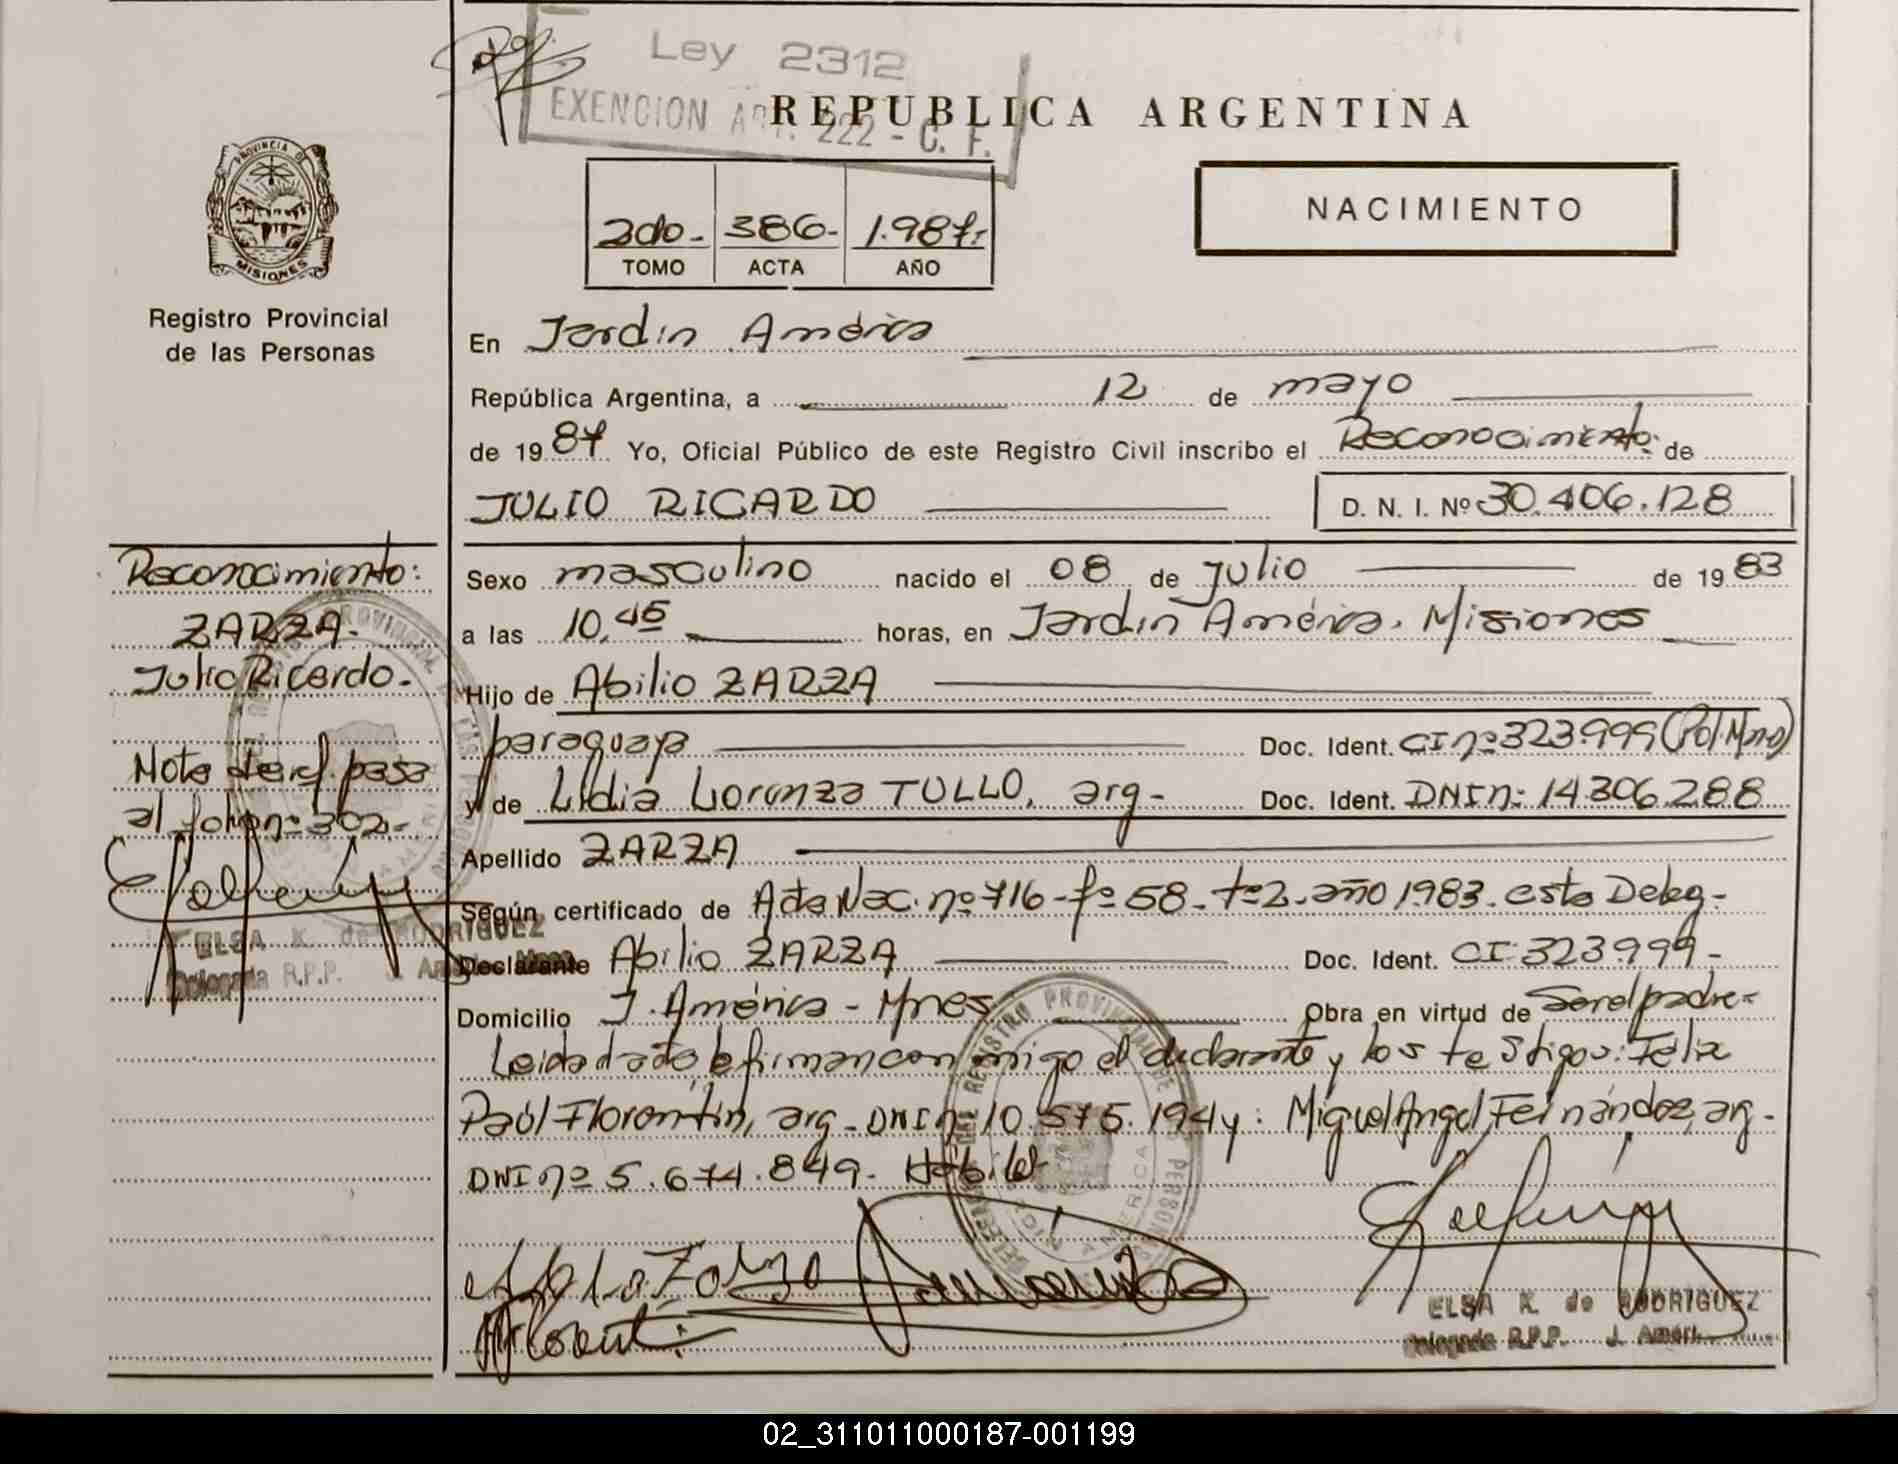 Ley 2312
EXENCION ART. 222 - C. F.
REPUBLICA ARGENTINA
PROVINCIA DE
MISIONES
Registro Provincial
de las Personas
2do.- 386- 1.987.-
TOMO ACTA AÑO
NACIMIENTO
En Jardín América
República Argentina, a 12 de mayo
de 1987 Yo, Oficial Público de este Registro Civil inscribo el Reconocimiento. de
JULIO RICARDO D. N. I. Nº 30.406.128
Sexo masculino nacido el 08 de Julio de 1983
a las 10,45 horas, en Jardín América. Misiones
Hijo de Abilio ZARZA
paraguaya Doc. Ident. CI nº 323.999 (Pol. Mnes)
y de Lidia Lorenza TULLO, arg- Doc. Ident. DNI n: 14.306.288
Apellido ZARZA
Según certificado de Acta Nac. nº 716-fº 58-tº2-año 1983. esta Deleg-
Declarante Abilio ZARZA Doc. Ident. CI: 323.999-
Domicilio J. América - Mnes Obra en virtud de Ser el padre-
Leida la firman conmigo el declarante y los testigos: Félix
Paúl Florentín, arg- DNI nº 10.575.194 y: Miguel Angel Fernández, arg-
DNI nº 5.674.849-
ELSA K. de RODRIGUEZ
Delegada R.P.P. J. Améri.
Reconocimiento:
ZARZA-
Julio Ricardo.-
Nota de ref. pasa
al folio nº 302.-
ELSA K. de RODRIGUEZ
Delegada R.P.P. J. América Mnes.
02_311011000187-001199